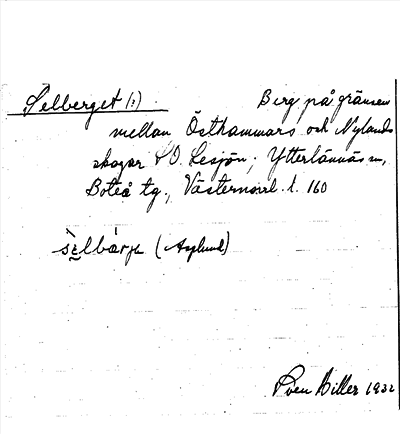 Selberget (:) Berg på gränsen
mellan Östhammars och Nylands
skogar O. Lesjön; Ytterlännäs sn,
Boteå tg., Västernorrl. l. 160
(Asplund)
Sven Hiller 1932